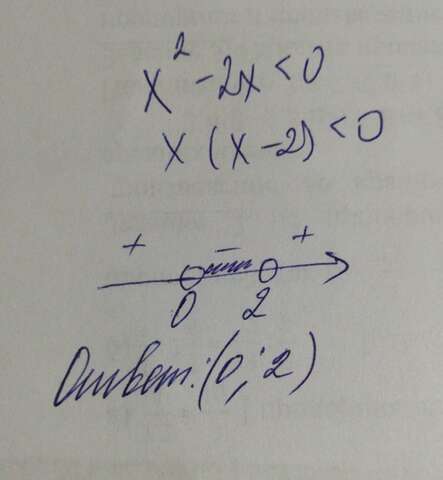 x² - 2x < 0
x (x - 2) < 0
+ - +
0 2
Ответ: (0; 2)